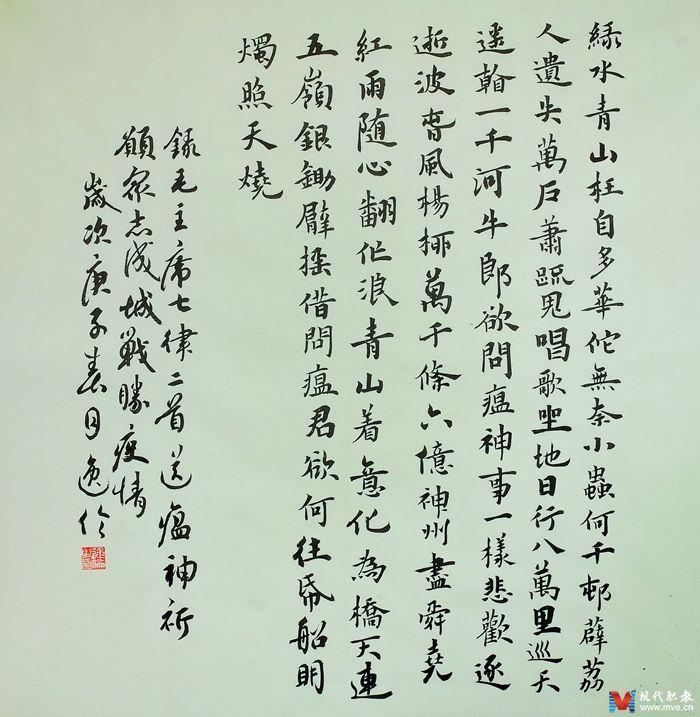 綠水青山枉自多華佗無奈小蟲何千邨薜荔
人遺失萬戶蕭疏鬼唱歌坐地日行八萬里巡天
遥看一千河牛郎欲問瘟神事一樣悲歡逐
逝波春風楊柳萬千條六億神州盡舜堯
紅雨随心翻作浪青山着意化為橋天連
五嶺銀鋤臂搖借問瘟君欲何往帋船明
燭照天燒
錄毛主席七律二首送瘟神祈
願眾志成城戰勝疫情
歲次庚子春月逸伦
现代职教
www.mve.cn